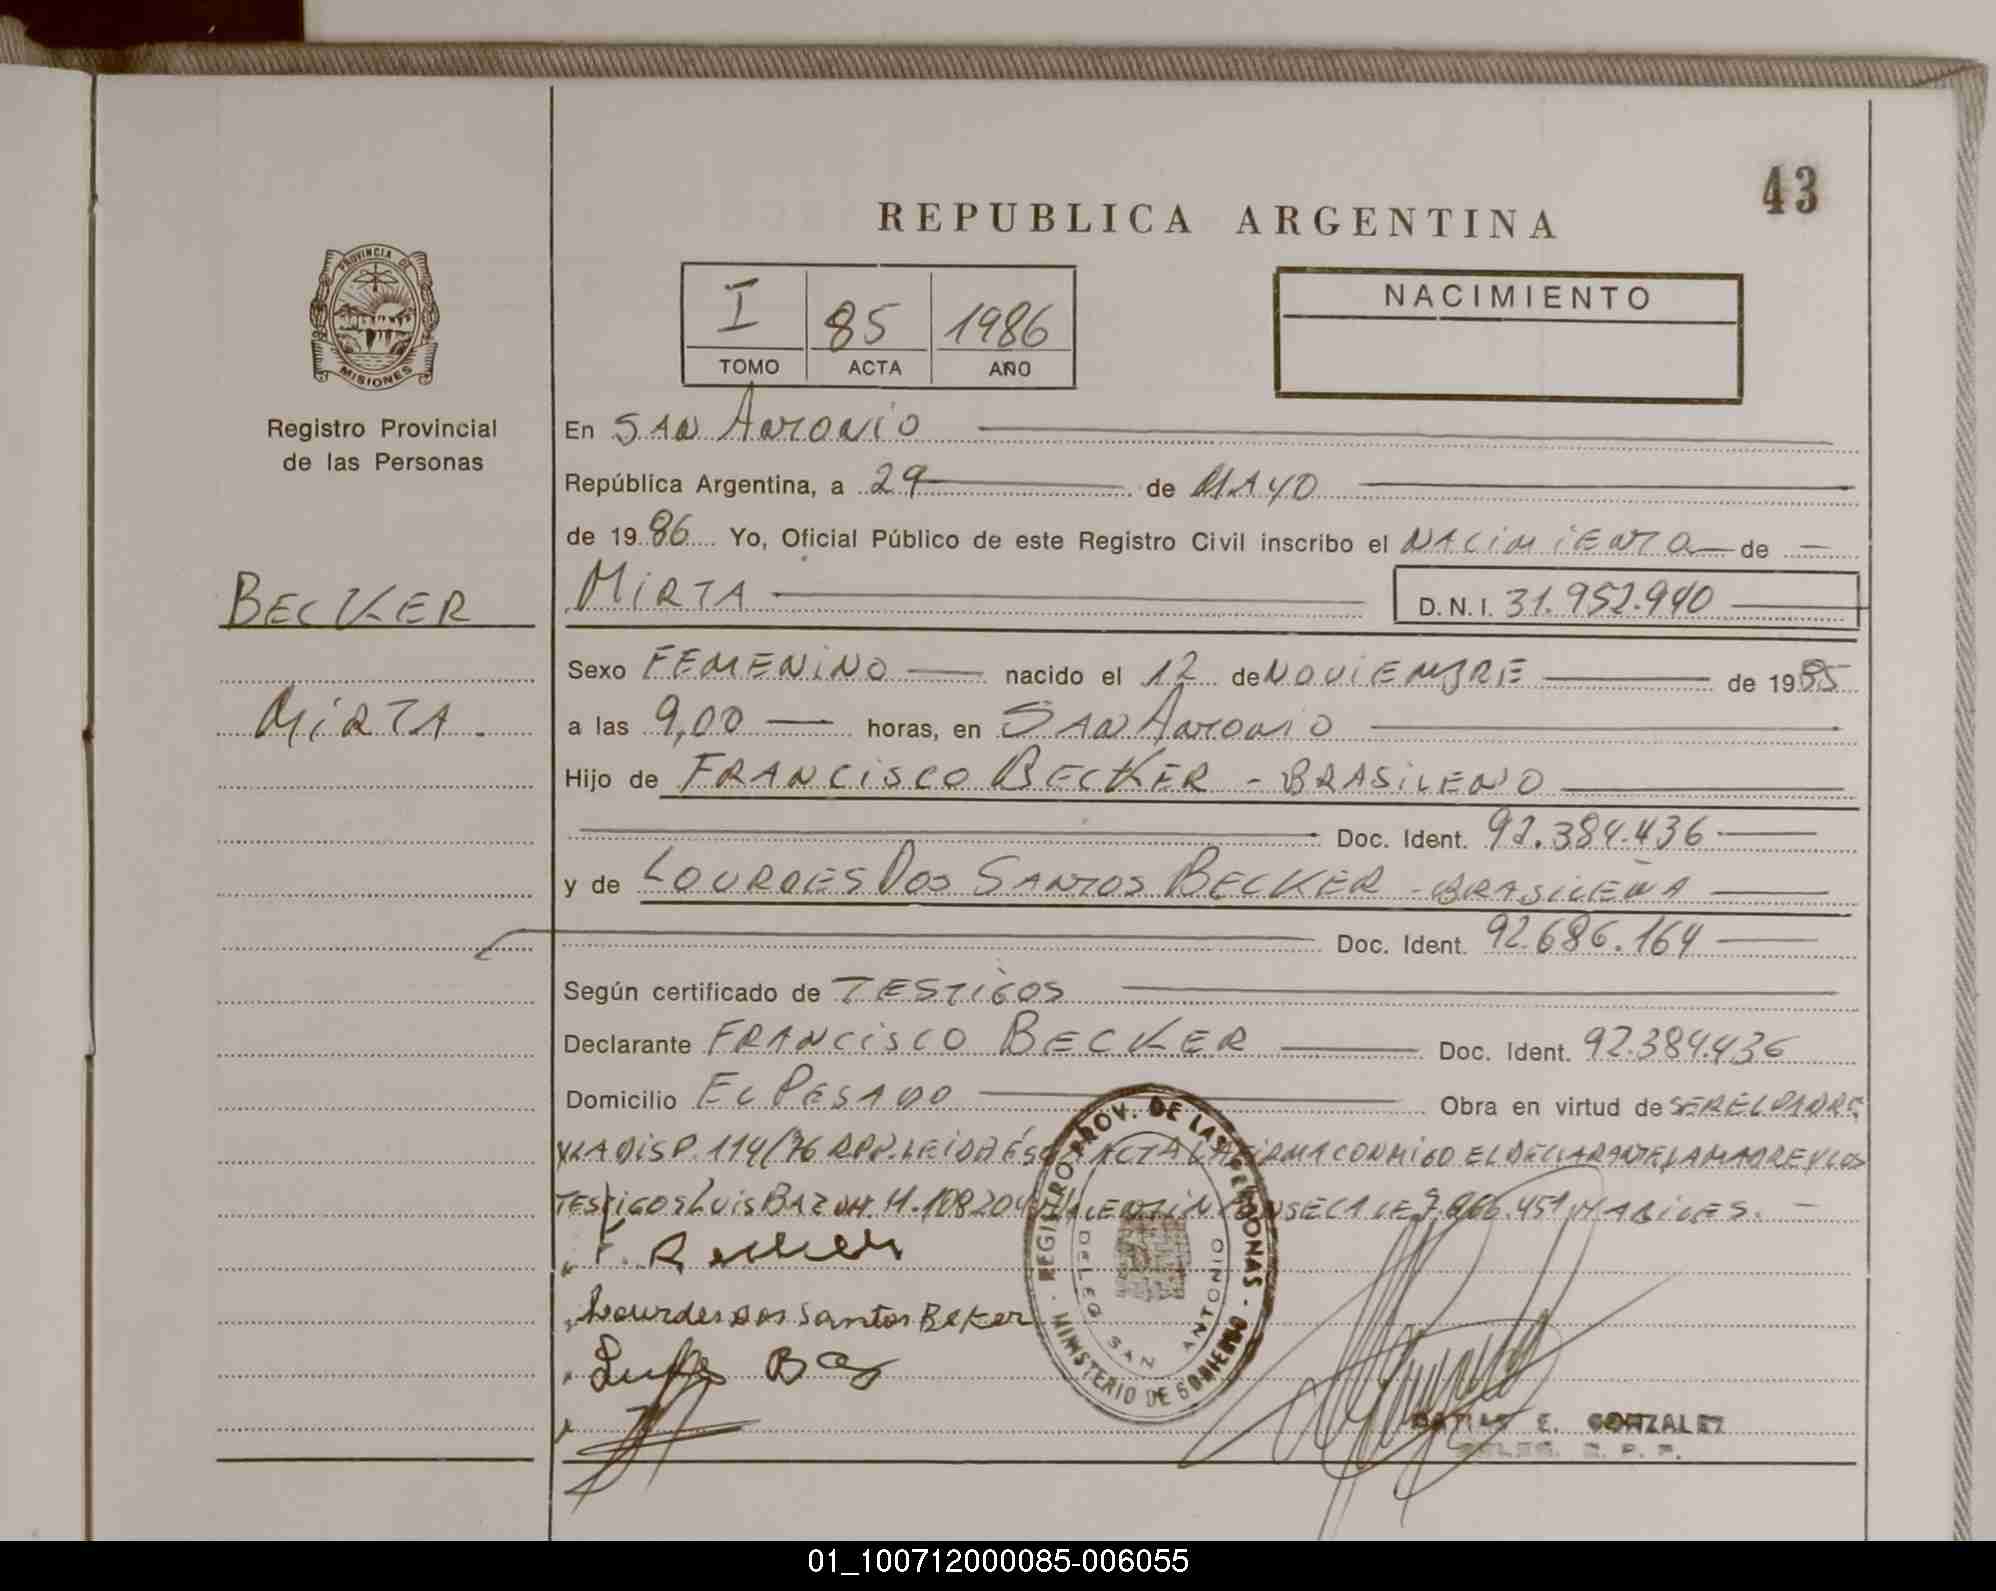 43
REPUBLICA ARGENTINA
PROVINCIA DE
MISIONES
Registro Provincial
de las Personas
I 85 1986
TOMO ACTA AÑO
NACIMIENTO
En SAN ANTONIO
República Argentina, a 29 de MAYO
de 1986 Yo, Oficial Público de este Registro Civil inscribo el NACIMIENTO de
BECKER
MIRTA D.N.I. 31.952.940
Sexo FEMENINO nacido el 12 de NOVIEMBRE de 1985
MIRTA.
a las 9,00 horas, en SAN ANTONIO
Hijo de FRANCISCO BECKER - BRASILENO
Doc. Ident. 92.384.436
y de LOURDES DOS SANTOS BECKER - BRASILEÑA
Doc. Ident. 92.686.164
Según certificado de TESTIGOS
Declarante FRANCISCO BECKER Doc. Ident. 92.384.436
Domicilio EL PESADO Obra en virtud de SER EL PADRE
Y LA DISP. 114/76 RPP. LEIDA ÉSTA ACTA LA FIRMA CONMIGO EL DECLARANTE LA MADRE Y LOS
TESTIGOS LUIS BAZ HABILES.
Lourdes dos Santos Beker
Luis Baz
REGISTRO PROV. DE LAS PERSONAS
MINISTERIO DE GOBIERNO
DELEG SAN ANTONIO
E. GONZALEZ
01_100712000085-006055